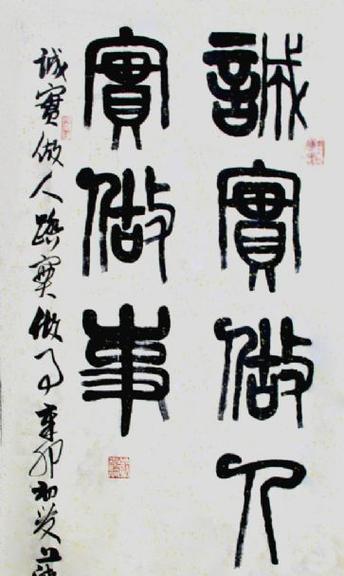 誠實做人
實做事
誠實做人踏實做事辛卯初夏